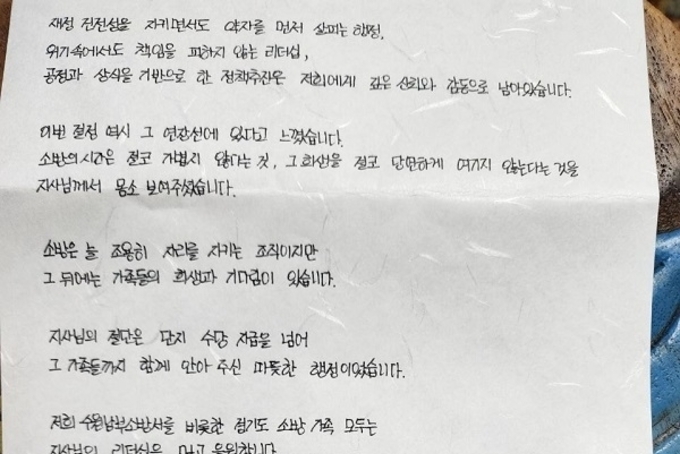 재정 건전성을 지키면서도 약자를 먼저 살피는 행정,
위기속에서도 책임을 피하지 않는 리더십,
공정과 상식을 기반으로 한 정책추진은 저희에게 깊은 신뢰와 감동으로 남아있습니다.
이번 결정 역시 그 연장선에 있다고 느꼈습니다.
소방의시간은 결코 가볍지 않다는 것, 그 희생을 결코 당연하게 여기지 않는다는 것을
지사님께서 몸소 보여주셨습니다.
소방은 늘 조용히 자리를 지키는 조직이지만
그 뒤에는 가족들의 희생과 기다림이 있습니다.
지사님의 결단은 단지 수당 지급을 넘어
그 가족들까지 함께 안아 주신 따뜻한 행정이었습니다.
저희 수원남부소방서를 비롯한 경기도 소방 가족 모두는
지사님의 리더십을 믿고 응원합니다